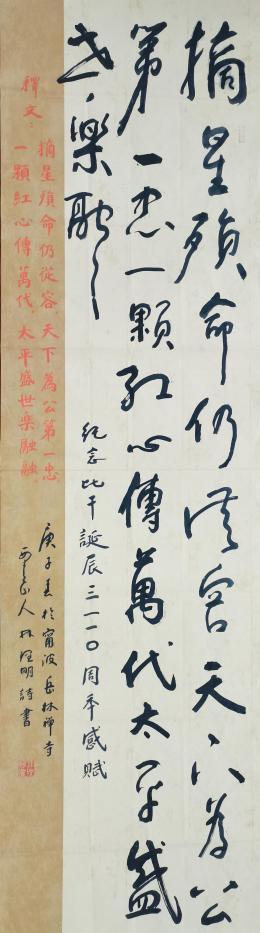 摘星殞命仍從容天下為公
第一忠一顆紅心傳萬代太平盛
世樂融〻
紀念比干誕辰三一一〇周年感賦
釋文：
摘星殞命仍從容，天下為公第一忠，
一顆紅心傳萬代，太平盛世樂融融。
庚子春於甯波岳林禪寺
山人林明詩書